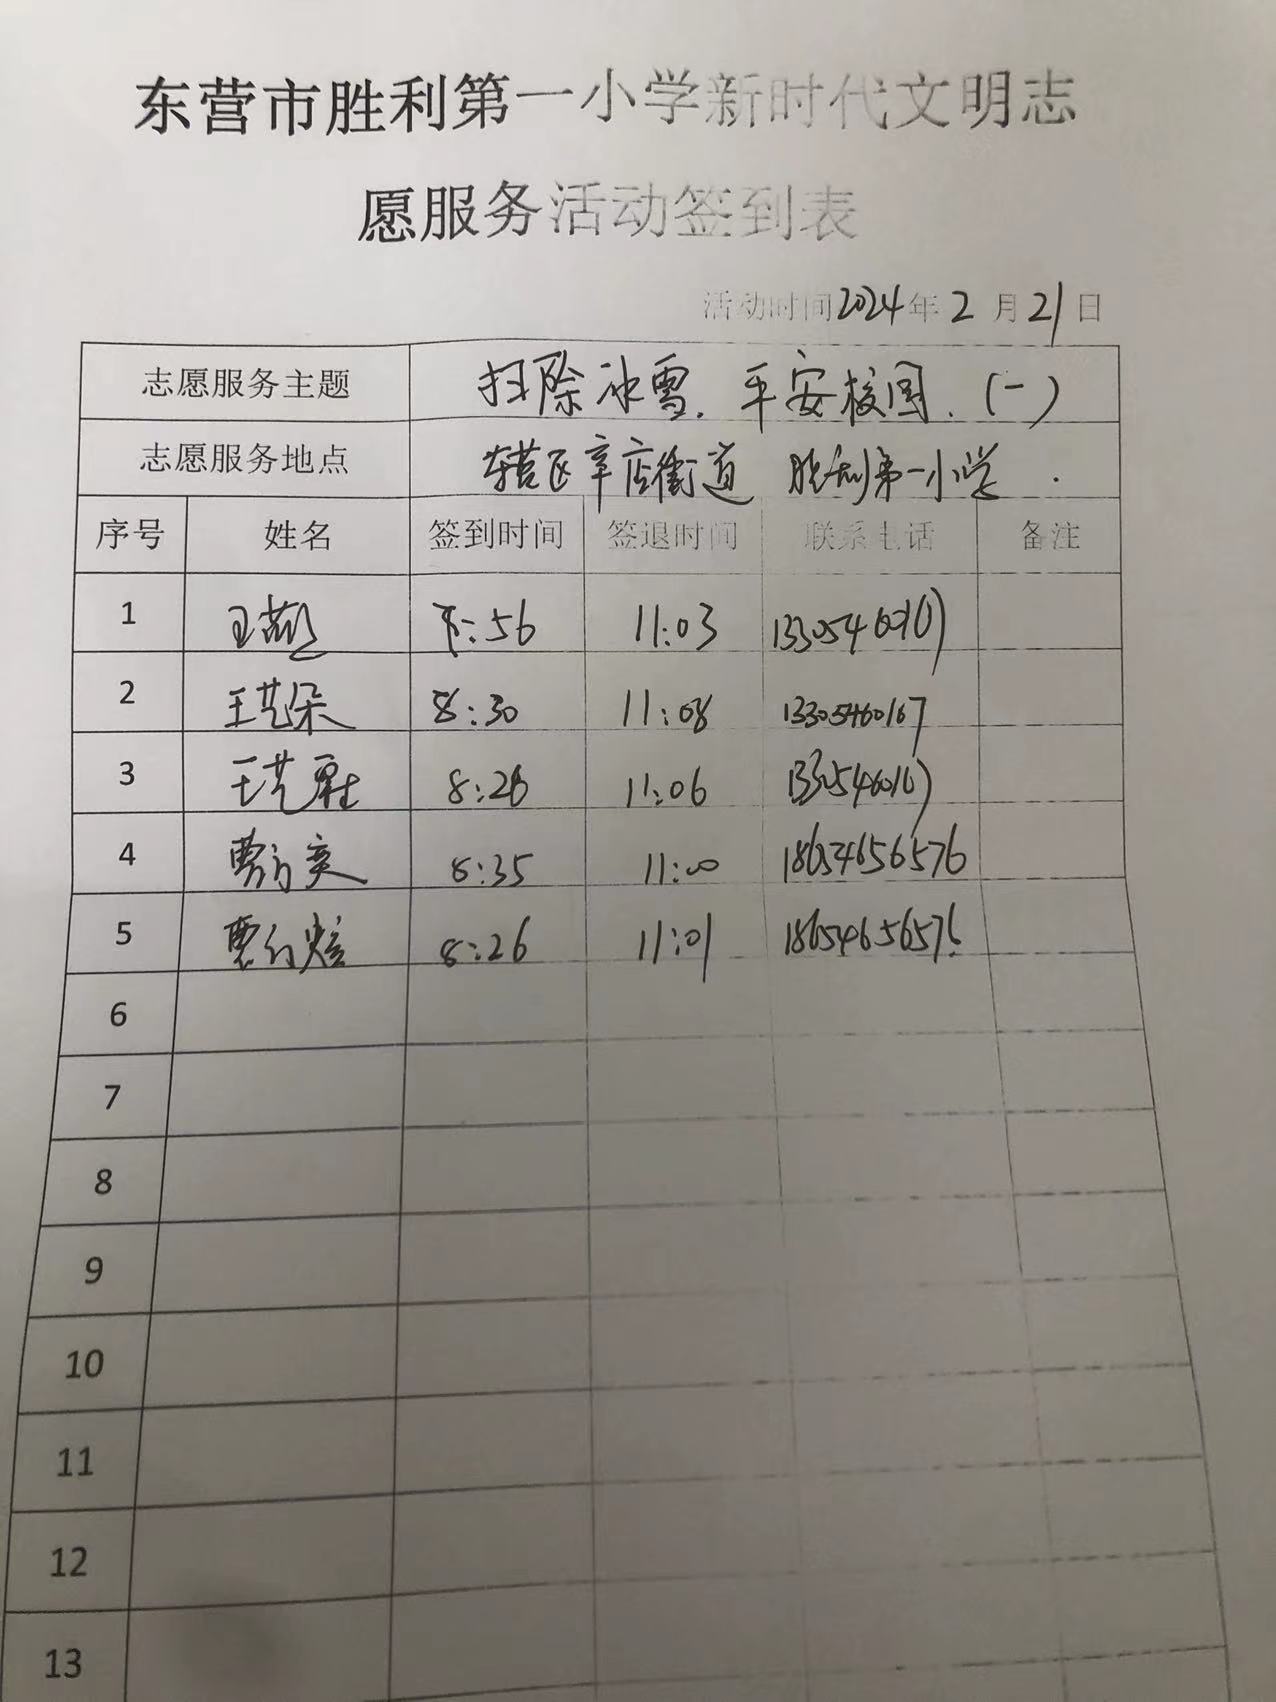 东营市胜利第一小学新时代文明志
愿服务活动签到表
活动时间2024年2月21日
志愿服务主题 扫除冰雪.平安校园.(一)
志愿服务地点 东营区辛店街道 胜利第一小学.
序号 姓名 签到时间 签退时间 联系电话 备注
1 :56 11:03
2 王艺朵 8:30 11:08 13305460167
3 王艺 8:26 11:06 13305460167
4 8:35 11:00 18654656576
5 8:26 11:01 18654656576
6
7
8
9
10
11
12
13